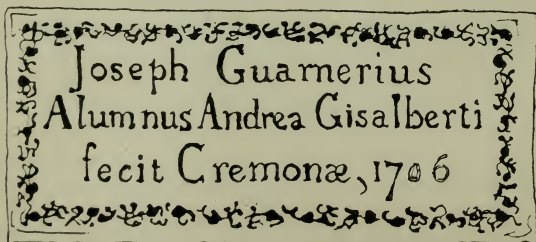 Joseph Guarnerius
Alumnus Andrea Gisalberti
fecit Cremonæ, 1706